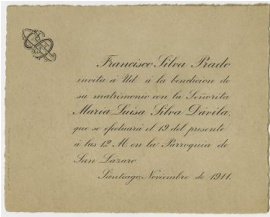 Francisco Silva Prado
invita a Ud. á la bendicion de
su matrimonio con la Señorita
Maria Luisa Silva Dávila,
que se efectuará el 19 del presente
á las 12 M en la Parroquia de
San Lázaro.
Santiago, Noviembre de 1911.